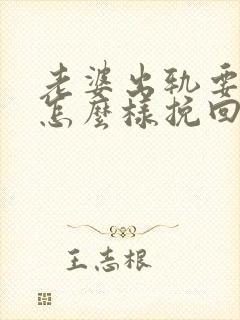 老婆出轨要
怎麼样挽回
王志根